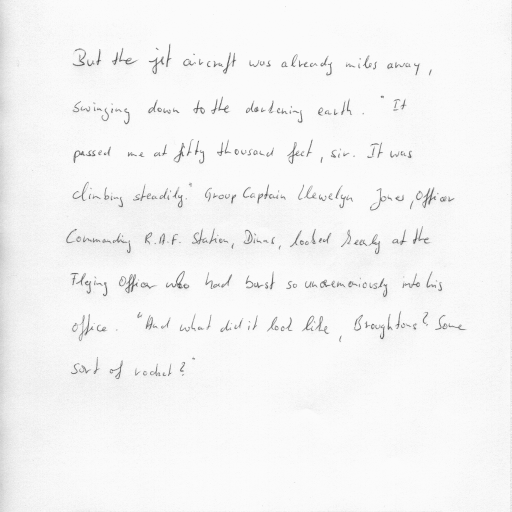 But the jet aircraft was already miles away,
swinging down to the darkening earth. "It
passed me at fifty thousand feet, sir. It was
climbing steadily." Group Captain Llewelyn Jones, Officer
Commanding R.A.F. Station, Dinas, looked at the
Flying Officer who had burst so unceremoniously into his
office. "And what did it look like, Broughtons? Some
sort of rocket?"